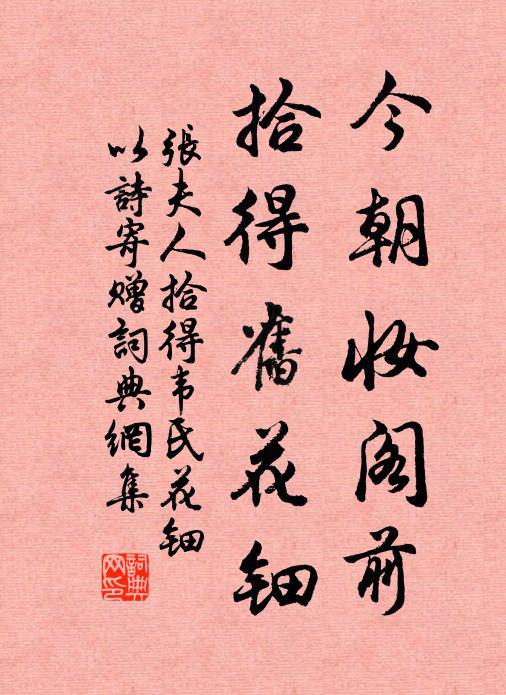 今朝妆阁前
拾得舊花钿
張夫人拾得韦氏花钿
以詩寄贈詞典網集
詞典
网印